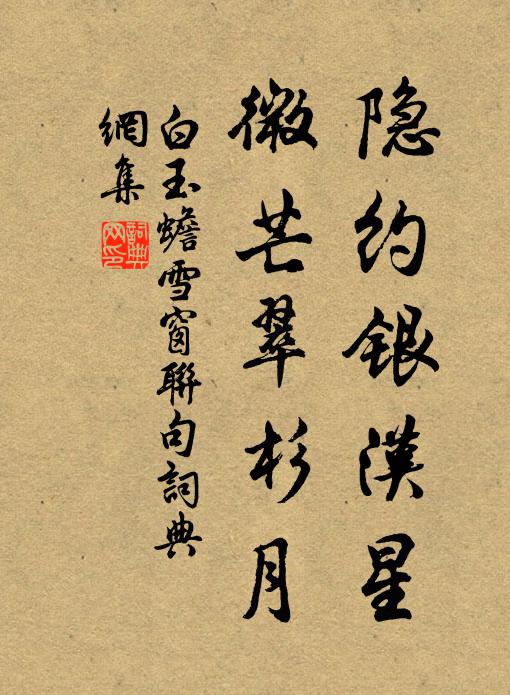 隐约银汉星
微芒翠杉月
白玉蟾雪窗联句词典
网集
词典
网印